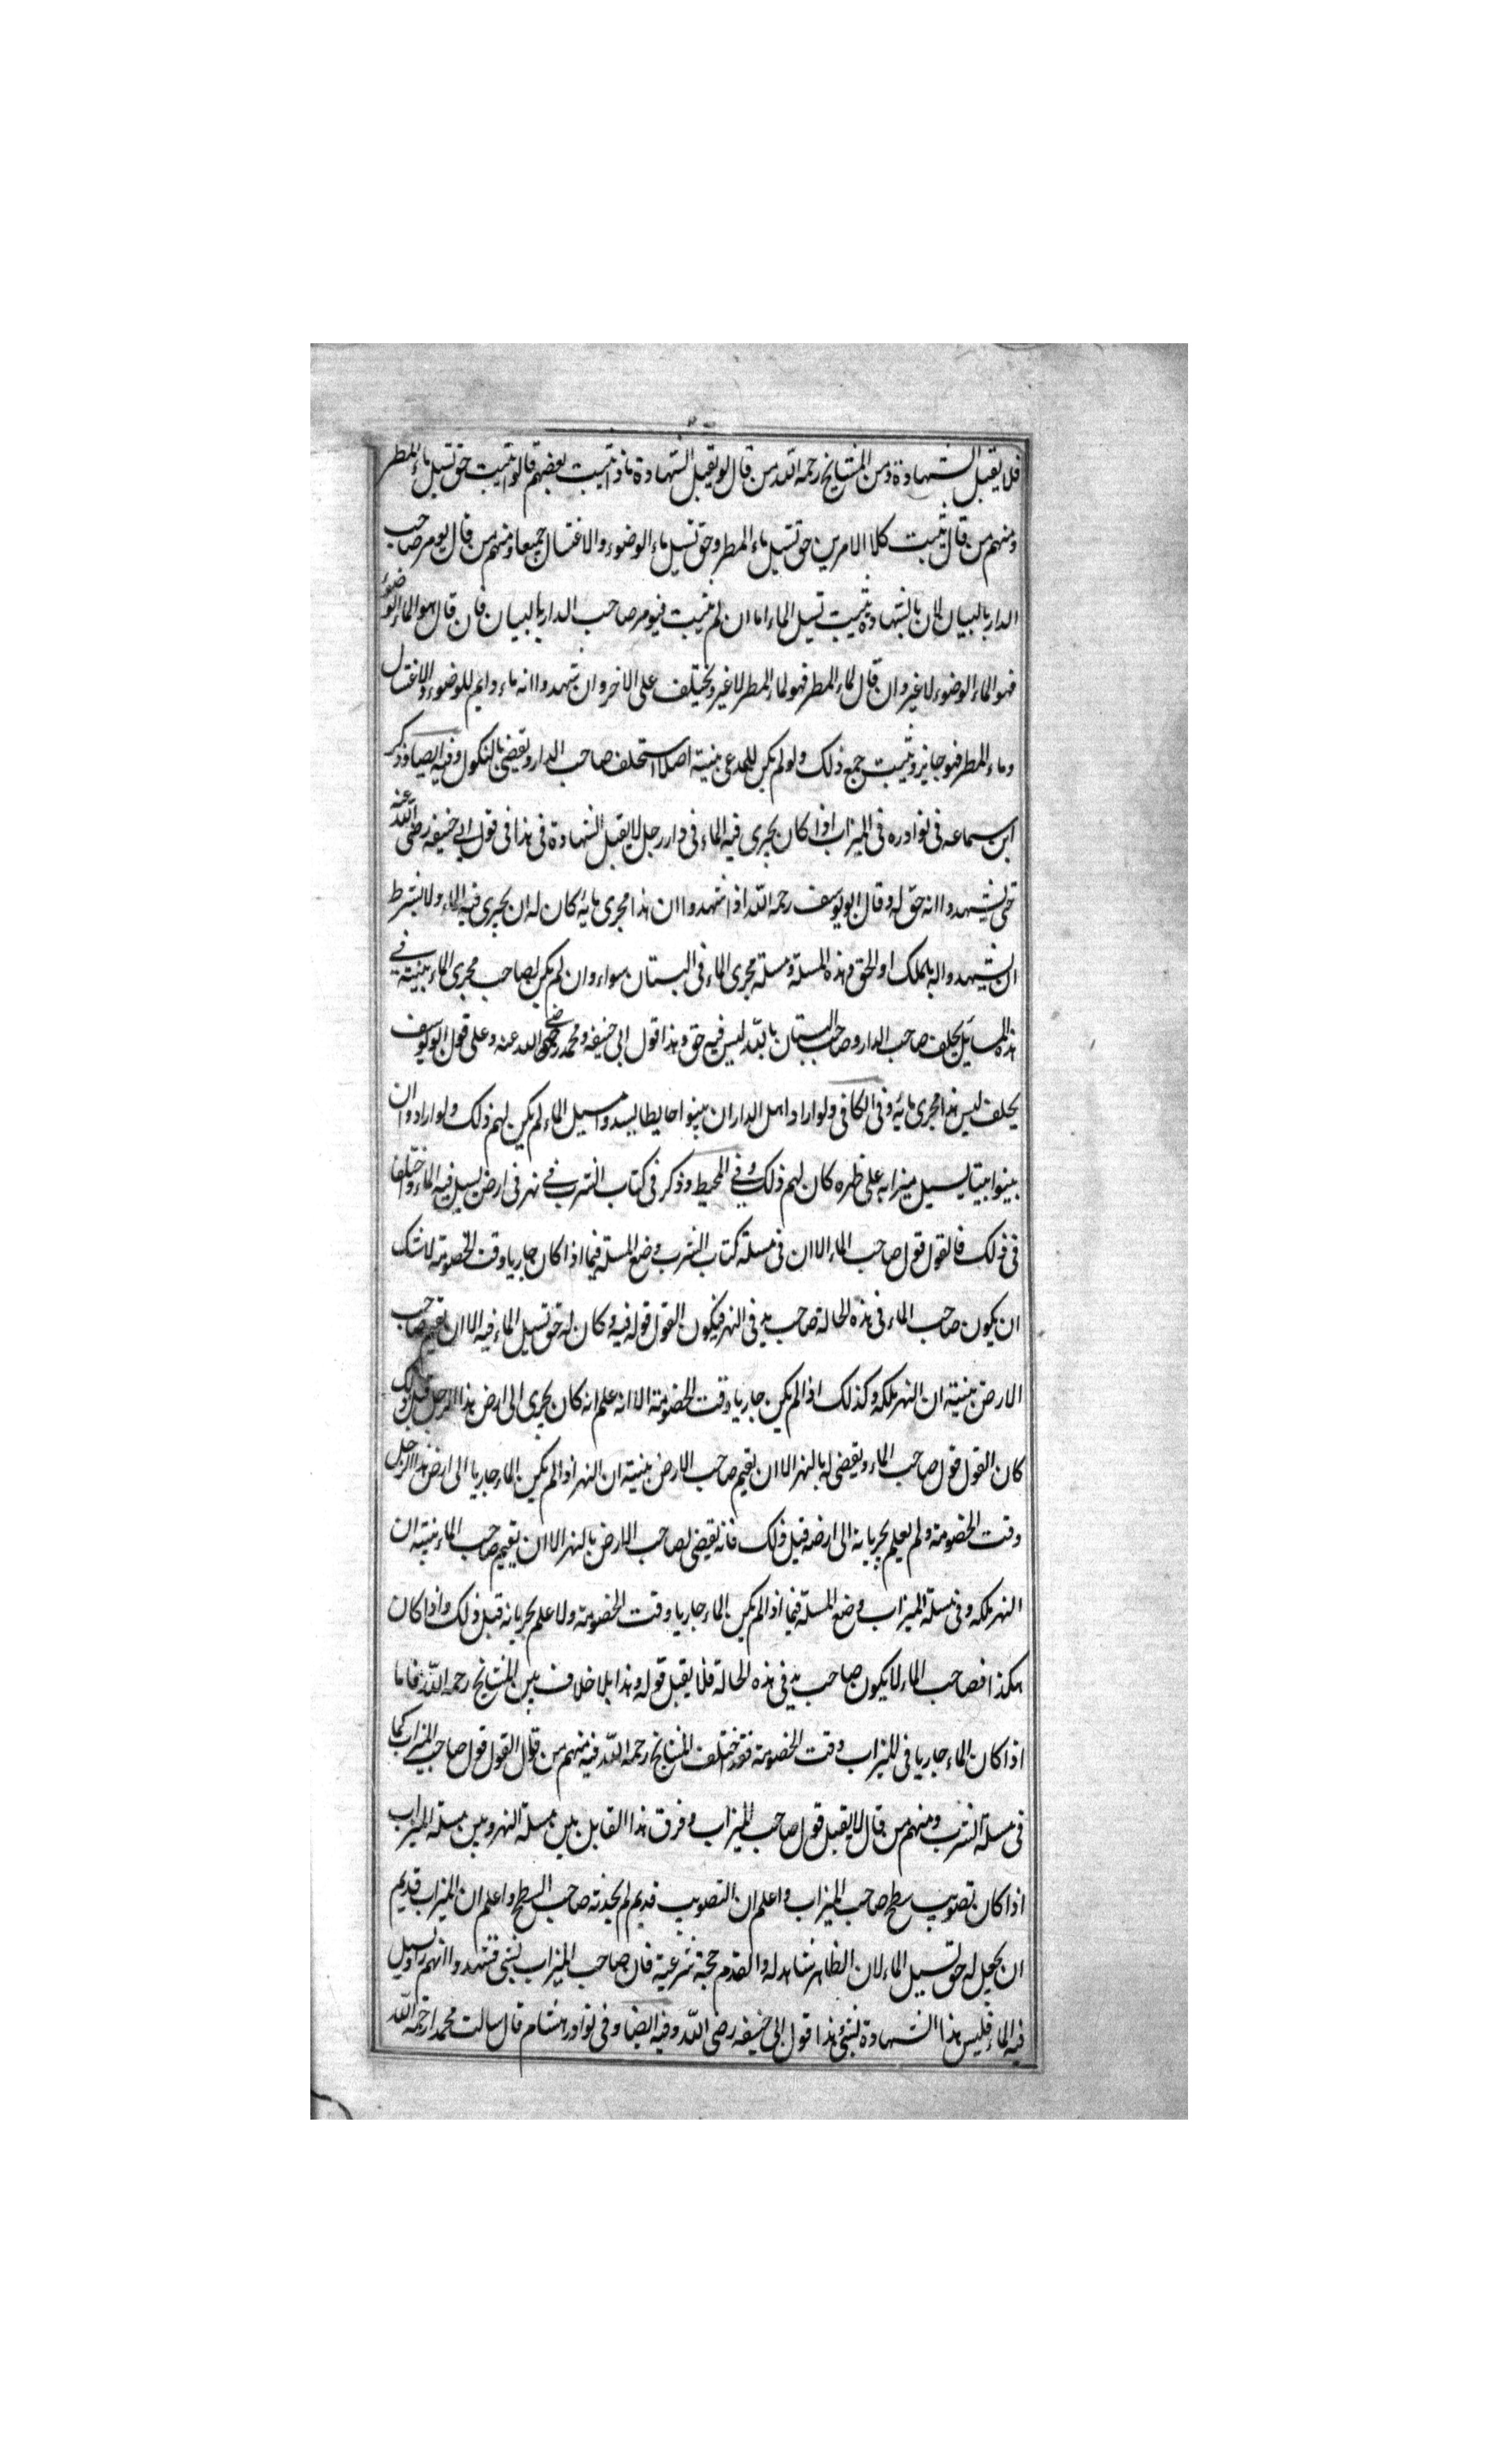 فلا يقبل الشهادة ومن المشايخ رحمه الله من قال لو يقبل الشهادة ماذا يثبت بعضهم قالوا يثبت حق تسيل ماء المطر
ومنهم من قال يثبت كلا الامرين حق تسيل ماء المطر وحق تسيل ماء الوضوء والاغتسال جميعا ومنهم من قال يومر صاحب
الدار بالبيان لان بالشهادة يثبت تسيل الماء اما ان لم يثبت فيومر صاحب الدار بالبيان فان قال هو الماء الوضوء
فهو الماء الوضوء لا غير وان قال لماء المطر فهو لماء المطر لا غير ويختلف على الاخر وان شهدوا انه ماء دايم للوضوء والاغتسال
وماء المطر فهو جايز ويثبت جمع ذلك ولو لم يكن للمدعى بينة اصلا استحلف صاحب الدار ويقضى بالنكول وفيه ايضا وذكر
ابن سماعه فى نوادره فى الميزاب اذا كان يجرى فيه الماء فى دار رجل لا يقبل الشهادة فى هذا فى قول ابى حنيفه رضى الله عنه
حتى يشهدوا انه حق له وقال ابو يوسف رحمه الله اذا شهدوا ان هذا مجرى مايه كان له ان يجرى فيه الماء ولا يشترط
ان يشهدوا له بالملك او الحق وهذه المسلة ومسلة مجرى الماء فى البستان سواء وان لم يكن لصاحب مجرى الماء بينة فى
هذه المسايل يحلف صاحب الدار وصاحب البستان بالله ليس فيه حق وهذا قول ابى حنيفه ومحمد رضى الله عنه وعلى قول ابو يوسف
يحلف ليس هذا مجرى مايه وفى الكافى ولو اراد اهل الدار ان يبنوا حايطا ليسدوا مسيل الماء لم يكن لهم ذلك ولو ارادوا ان
يبنوا بيتا ليسيل ميزابه على ظهره كان لهم ذلك وفى المحيط وذكر فى كتاب الشرب فى نهر فى ارض يسيل فيه الماء واختلفا
فى ذلك فالقول قول صاحب الماء الا ان فى مسلة كتاب الشرب وضع المسلة فيما اذا كان جاريا وقت الخصومة لا شك
ان يكون صاحب الماء فى هذه الحالة صاحب يد فى النهر فيكون القول قوله فيه وكان له حق تسيل الماء فيه الا ان يقيم صاحب
الارض بينة ان النهر ملكه وكذلك اذا لم يكن جاريا وقت الخصومة الا انه علم انه كان يجرى الى ارض هذا الرجل قبل ذلك
كان القول قول صاحب الماء ويقضى له بالنهر الا ان يقيم صاحب الارض بينة ان النهر اذا لم يكن الماء جاريا الى ارض هذا الرجل
وقت الخصومة ولم يعلم بجريانه الى ارضه قبل ذلك فانه يقضى لصاحب الارض بالنهر الا ان يقيم صاحب الماء بينة ان
النهر ملكه وفى مسلة الميزاب وضع المسلة فيما اذا لم يكن الماء جاريا وقت الخصومة ولا علم بجريانه قبل ذلك واذا كان
هكذا فصاحب الماء لا يكون صاحب يد فى هذه الحالة فلا يقبل قوله وهذا بلا خلاف بين المشايخ رحمه الله فاما
اذا كان الماء جاريا فى الميزاب وقت الخصومة فقد اختلف المشايخ رحمه الله فيه منهم من قال القول قول صاحب الميزاب كما
فى مسلة الشرب ومنهم من قال لا يقبل قول صاحب الميزاب وفرق هذا القايل بين مسلة النهر وبين مسلة الميزاب
اذا كان تصويب سطح صاحب الميزاب واعلم ان التصويب قديم لم يحدثه صاحب السطح واعلم ان الميزاب قديم
ان يجعل له حق تسيل الماء لان الظاهر شاهد له والقدم حجة شرعية فان صاحب الميزاب بشى فشهدوا انهم راوا يسيل
فيه الماء فليس هذا الشهادة بشى هذا قول ابى حنيفه رضى الله وفيه ايضا وفى نوادر هشام قال سالت محمدا رحمه الله